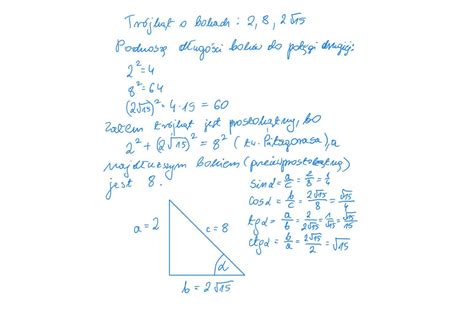 Trójkąt o bokach: 2, 8, 2√15
Podnoszę długości boków do potęgi drugiej:
2² = 4
8² = 64
(2√15)² = 4·15 = 60
Zatem trójkąt jest prostokątny, bo
2² + (2√15)² = 8² (tw. Pitagorasa), a
najdłuższym bokiem (przeciwprostokątną)
jest 8.
sinα = a/c = 2/8 = 1/4
cosα = b/c = 2√15/8 = √15/4
tgα = a/b = 2/2√15 = 1/√15 = √15/15
ctgα = b/a = 2√15/2 = √15
a = 2
c = 8
α
b = 2√15